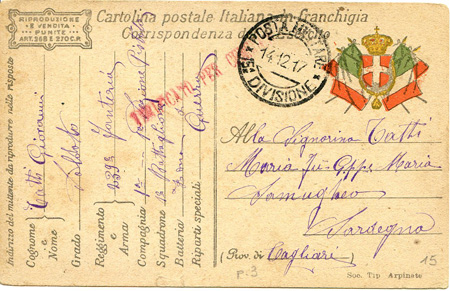 RIPRODUZIONE
E VENDITA
PUNITE
ART. 296 E 270 C.P.
Cartolina postale Italiana in franchigia
Corrispondenza
POSTA MILITARE
14.12.17
DIVISIONE
VERIFICATO PER CE
Indirizzo del mittente da riprodurre nelle risposte
Cognome e Nome Tatti Giovanni
Grado Soldato
Reggimento e Arma 239° Fanteria
Compagnia 1a
Squadrone 1° Battaglione
Batteria Zona Guerra
Riparti speciali
Alla Signorina Tatti
Maria fu Gpp. Maria
Samugheo
Sardegna
(Prov. di Cagliari
15
P.3
Soc. Tip Arpinate